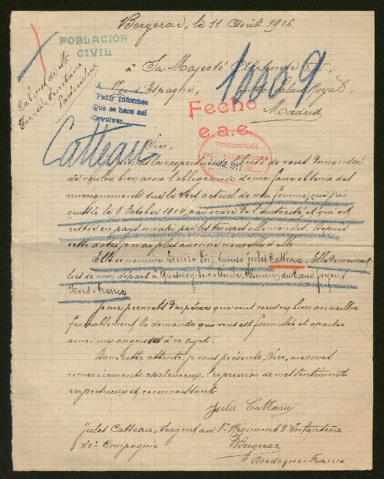 Bergerac, le 11 Août 1916
POBLACION
CIVIL
à Sa Majesté Alphonse
Roi d'Espagne, Palais Royal
Madrid
10009
Pedir informes
que se hace así
devolver.
Fecho
e.a.c.
Catteau
Sire,
J'ai la respectueuse de vous demander
de vouloir bien avoir l'obligeance de me faire obtenir des
renseignements sur le sort actuel de ma femme, que j'ai
quittée le 9 Octobre 1914 par ordre de l'autorité et qui est
restée en pays envahi par les troupes allemandes. Depuis
cette date je n'ai plus aucune nouvelle d'elle
Elle se nomme Jules Catteau. Elle demeurait
lors de mon départ à Quesnoy-sur-Deûle, Chemin du
Nord-France
Je me permets d'espérer que vous voudrez bien accueillir
favorablement la demande que vous est formulée et
ainsi mon angoisse à ce sujet.
Dans cette attente, je vous présente, Sire, avec mes
remerciements chaleureux, l'expression de mes sentiments
respectueux et reconnaissants
Jules Catteau
Jules Catteau, Sergent au Régiment d'Infanterie
Compagnie
Bergerac
Dordogne-France